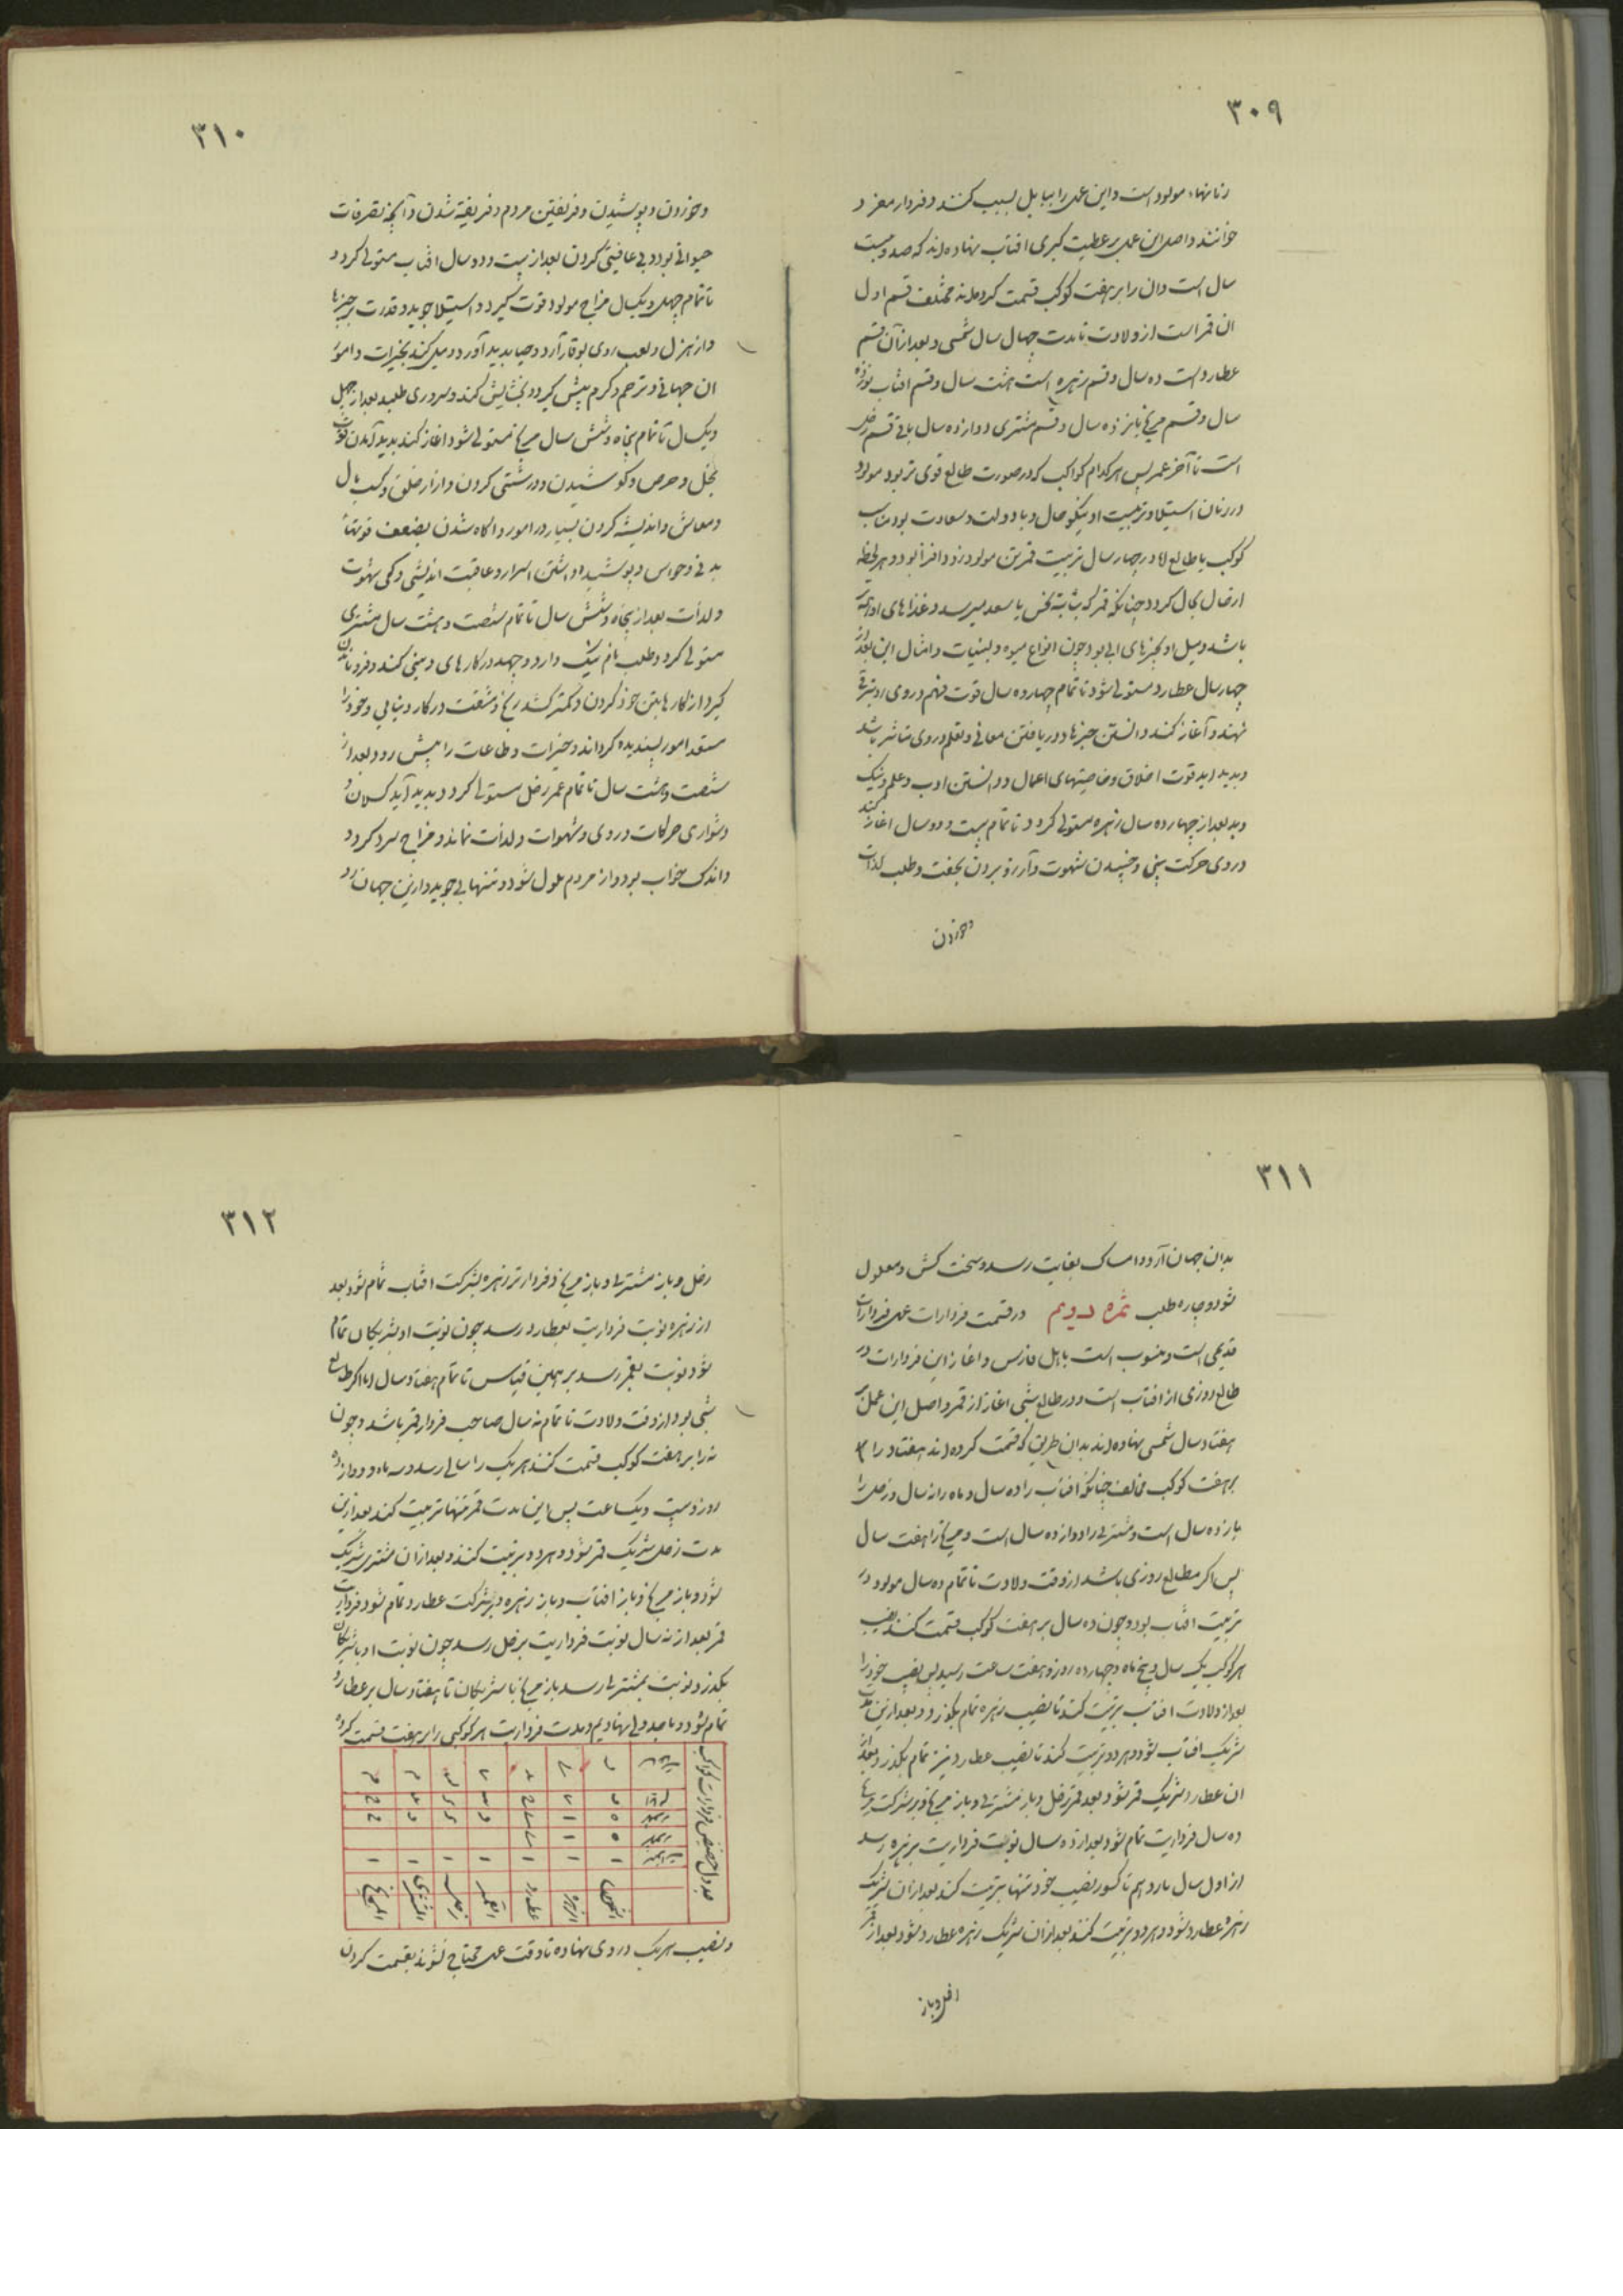 ۳۰۹
خوانند و اصل این عمل بر عطیت کبری افتاب نهاده‌اند که صد و بیست
سال است و ان را بر هفت کوکب قسمت کرده‌اند مختلف قسم اول
ان قمر است از ولادت تا مدت چهار سال شمسی و بعد از آن قسم
عطارد است ده سال و قسم زهره است هشت سال و قسم افتاب نوزده
سال و قسم مریخ پانزده سال و قسم مشتری دوازده سال باقی قسم زحل
است تا آخر عمر پس هر کدام کواکب که در صورت طالع قوی‌تر بود مولود
در زمان استیلا و تربیت او نیکو حال و با دولت و سعادت بود
کوکب با طالع اما در چهار سال تربیت قمر تن مولود زود افزا بود و هر لحظه
باشد و میل او بچیزهای ابی بود چون انواع میوه و لبنیات و امثال این بعد از
چهار سال عطارد مستولی شود تا تمام چهارده سال قوت فهم در وی
نهند و آغاز کند دانستن چیزها و دریافتن معانی و تعلم در وی
و پدید اید قوت اخلاق و خاصیتهای اعمال و دانستن ادب و علم و نیک
و بد بعد از چهارده سال زهره مستولی گردد تا تمام بیست و دو سال اغاز کند
در وی حرکت منی و جنبیدن شهوت و آرزو بردن بجفت و طلب لذات
و خوردن
۳۱۰
و خوردن و پوشیدن و فریفتن مردم و فریفته شدن و آنچه تصرفات
حیوانی بود و بی عاقبتی کردن بعد از بیست و دو سال افتاب مستولی گردد
تا تمام چهل و یک سال مزاج مولود قوت گیرد و استیلا جوید و قدرت بر چیزها
و از هزل و لعب روی بوقار آرد و حیا پدید آورد و میل کند بخیرات و امور
ان جهانی و ترحم و کرم پیش گیرد و بخشایش کند و سروری طلبد بعد از چهل
و یک سال تا تمام پنجاه و شش سال مریخ مستولی شود اغاز کند پدید آمدن قوت
بخل و حرص و کوشیدن و درشتی کردن و ازار خلق و کسب مال
و معاش و اندیشه کردن بسیار در امور و اگاه شدن بضعف قوتهاء
بدنی و حواس و پوشیده داشتن اسرار و عاقبت اندیشی و کمی شهوت
و لذات بعد از پنجاه و شش سال تا تمام شصت و هشت سال مشتری
مستولی گردد و طلب نام نیک دارد و جهد در کارهای دینی کند و فرو ماندن
گیرد از کارها بتن خود کردن و کمتر کشد رنج و مشقت در کار دنیایی و خود را
مستعد امور پسندیده گرداند و خیرات و طاعات را پیش رود بعد از
شصت و هشت سال تا تمام عمر زحل مستولی گردد و پدید آید کسلان و
دشواری حرکات در وی و شهوات و لذات نماند و مزاج سرد گردد
و اندک خواب بود و از مردم ملول شود و تنهایی جوید و ازین جهان رو
۳۱۱
بدان جهان آرد و امساک بغایت رسد و سخت کش و معلول
شود و چاره طلب ثمره دویم در قسمت فردارات عمل فردارات
قدیمی است و منسوب است باهل فارس و اغاز این فردارات در
طالع روزی از افتاب است و در طالع شبی اغاز از قمر و اصل این عمل بر
هفتاد سال شمسی نهاده‌اند بدان طریق که قسمت کرده‌اند هفتاد را
بر هفت کوکب مخالف چنانکه افتاب را ده سال و ماه را نه سال و زحل را
یازده سال است و مشتری را دوازده سال است و مریخ را هفت سال
پس اگر مطالع روزی باشد از وقت ولادت تا تمام ده سال مولود در
تربیت افتاب بود و چون ده سال بر هفت کوکب قسمت کنند نصیب
هر کوکب یک سال و پنج ماه و چهارده روز و هفت ساعت رسد پس نصیب خود را
بعد از ولادت افتاب تربیت کند تا نصیب زهره تمام بگذرد و بعد ازین
شریک افتاب شود و هر دو تربیت کند تا نصیب عطارد نیز تمام بگذرد بعد از
ان عطارد شریک قمر شود بعد قمر زحل و باز مشتری و باز مریخ
ده سال فرداریت تمام شود بعد از ده سال نوبت فرداریت بزهره رسد
از اول سال یازدهم تا کسور نصیب خود تنها تربیت کند بعد از ان شریک
زهره عطارد شود و هر دو تربیت کنند بعد از ان شریک زهره عطارد شود بعد از قمر
زحل و باز
۳۱۲
زحل و باز مشتری و باز مریخ و فردارتر زهره بشرکت افتاب تمام شود بعد
از زهره نوبت فرداریت بعطارد رسد چون نوبت او بشریکان تمام
شود نوبت بقمر رسد بر همین قیاس تا تمام هفتاد سال اما اگر طالع
شبی بود از وقت ولادت تا تمام نه سال صاحب فردار قمر باشد و چون
نه را بر هفت کوکب قسمت کنند هر یک را سالی رسد و سه ماه و دوازده
روز و بیست و یک ساعت پس این مدت قمر تنها تربیت کند بعد ازین
مدت زحل شریک قمر شود و هر دو تربیت کنند و بعد از ان مشتری شریک
شود و باز مریخ و باز افتاب و باز زهره و بشرکت عطارد تمام شود فرداریت
قمر بعد از نه سال نوبت فرداریت بزحل رسد چون نوبت او با شریکان
بگذرد نوبت بمشتری رسد باز مریخ با شریکان تا هفتاد سال بر عطارد
تمام شود و ما جدولی نهادیم و مدت فرداریت هر کوکبی را بر هفت قسمت کرده
جدول حصص فردارات کواکب
الشمس
الزهره
عطارد
القمر
زحل
المشتری
المریخ
و نصیب هر یک در وی نهاده تا وقت عمل محتاج نشوند بقسمت کردن